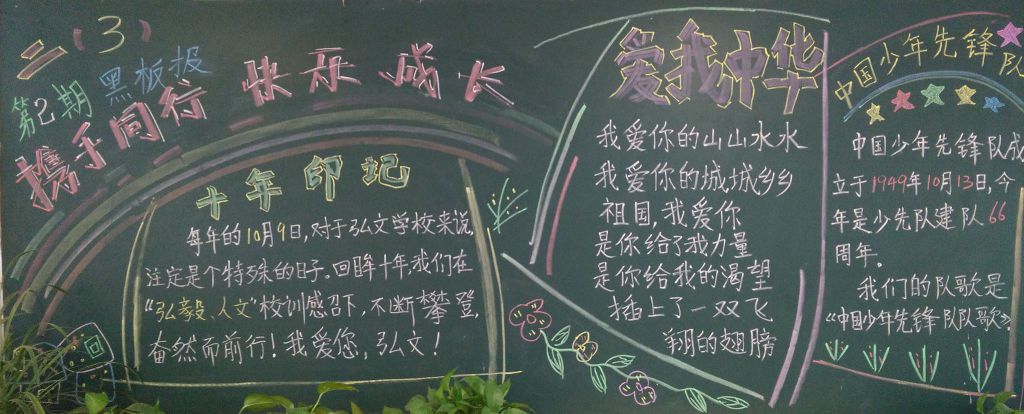 二（3）
第2期 黑板报
携手同行 快乐成长
十年印记
每年的10月9日，对于弘文学校来说，
注定是个特殊的日子。回眸十年，我们在
“弘毅、人文”校训感召下，不断攀登，
奋然而前行！我爱您，弘文！
回
爱我中华
我爱你的山山水水
我爱你的城城乡乡
祖国，我爱你
是你给了我力量
是你给我的渴望
插上了一双飞
翔的翅膀
中国少年先锋队
中国少年先锋队成
立于1949年10月13日，今
年是少先队建队66
周年。
我们的队歌是
“中国少年先锋队队歌”